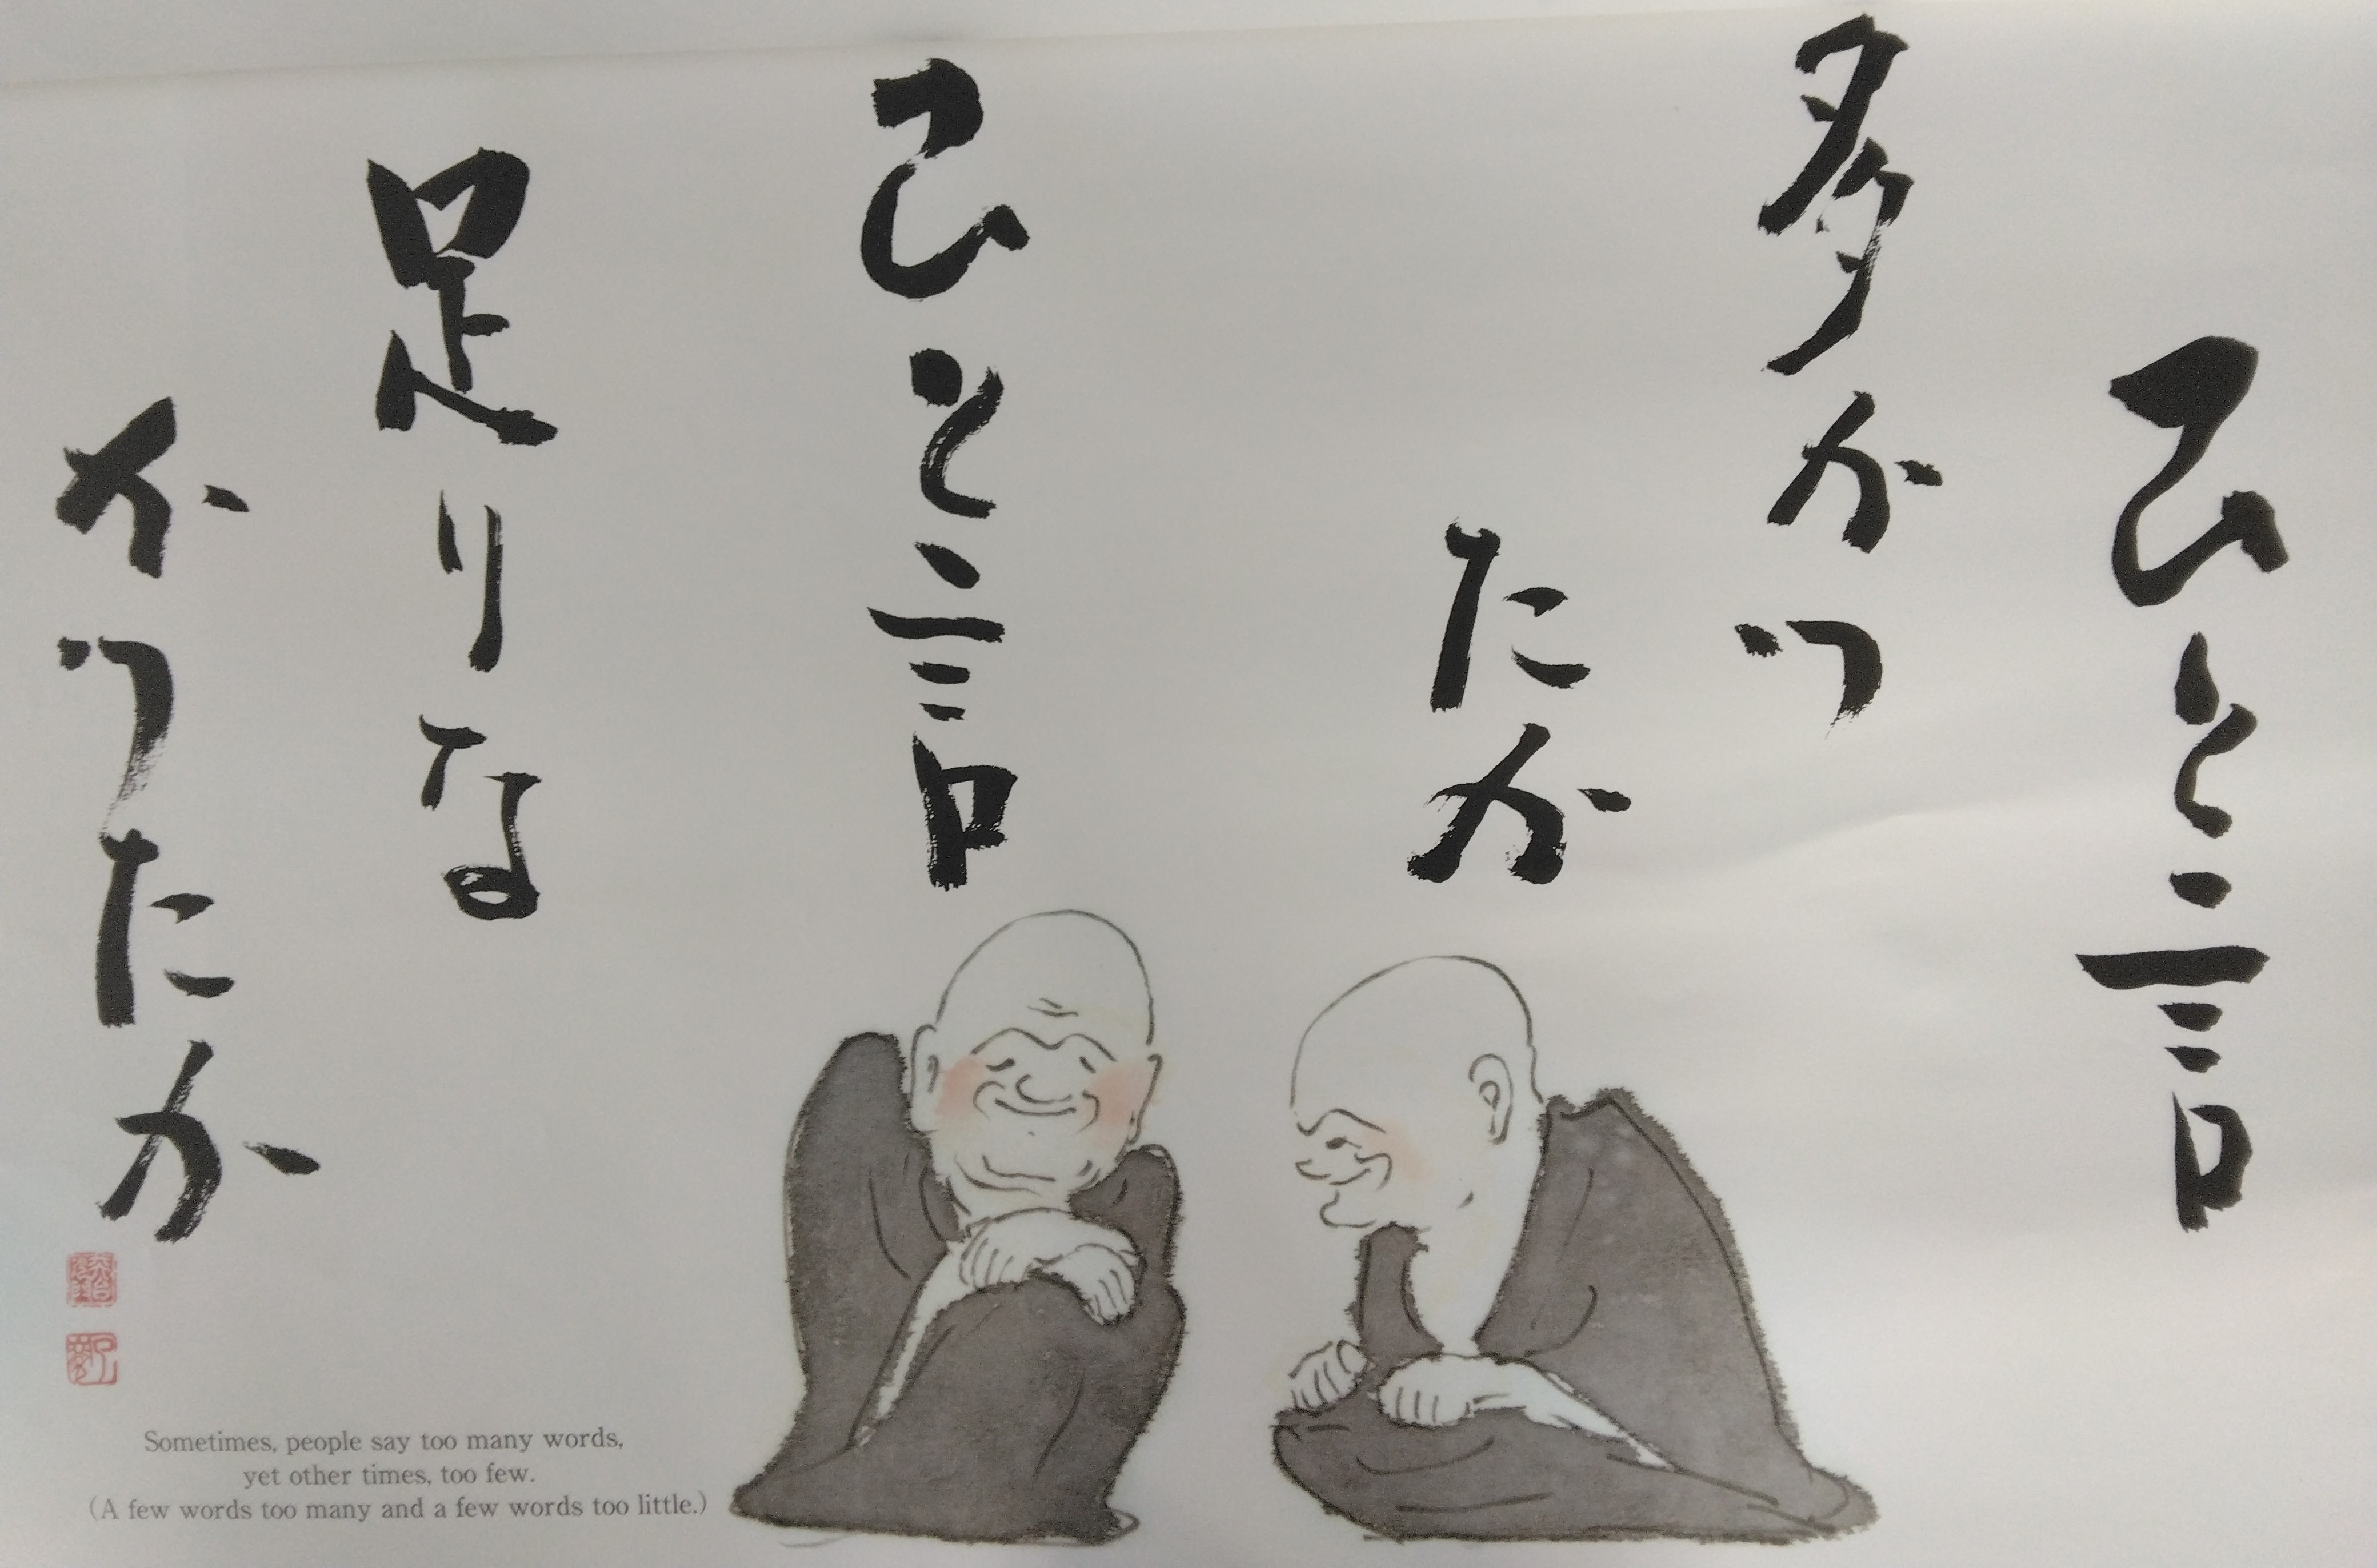 ひと言
多かっ
たか
ひと言
足りな
かったか
Sometimes, people say too many words,
yet other times, too few.
(A few words too many and a few words too little.)